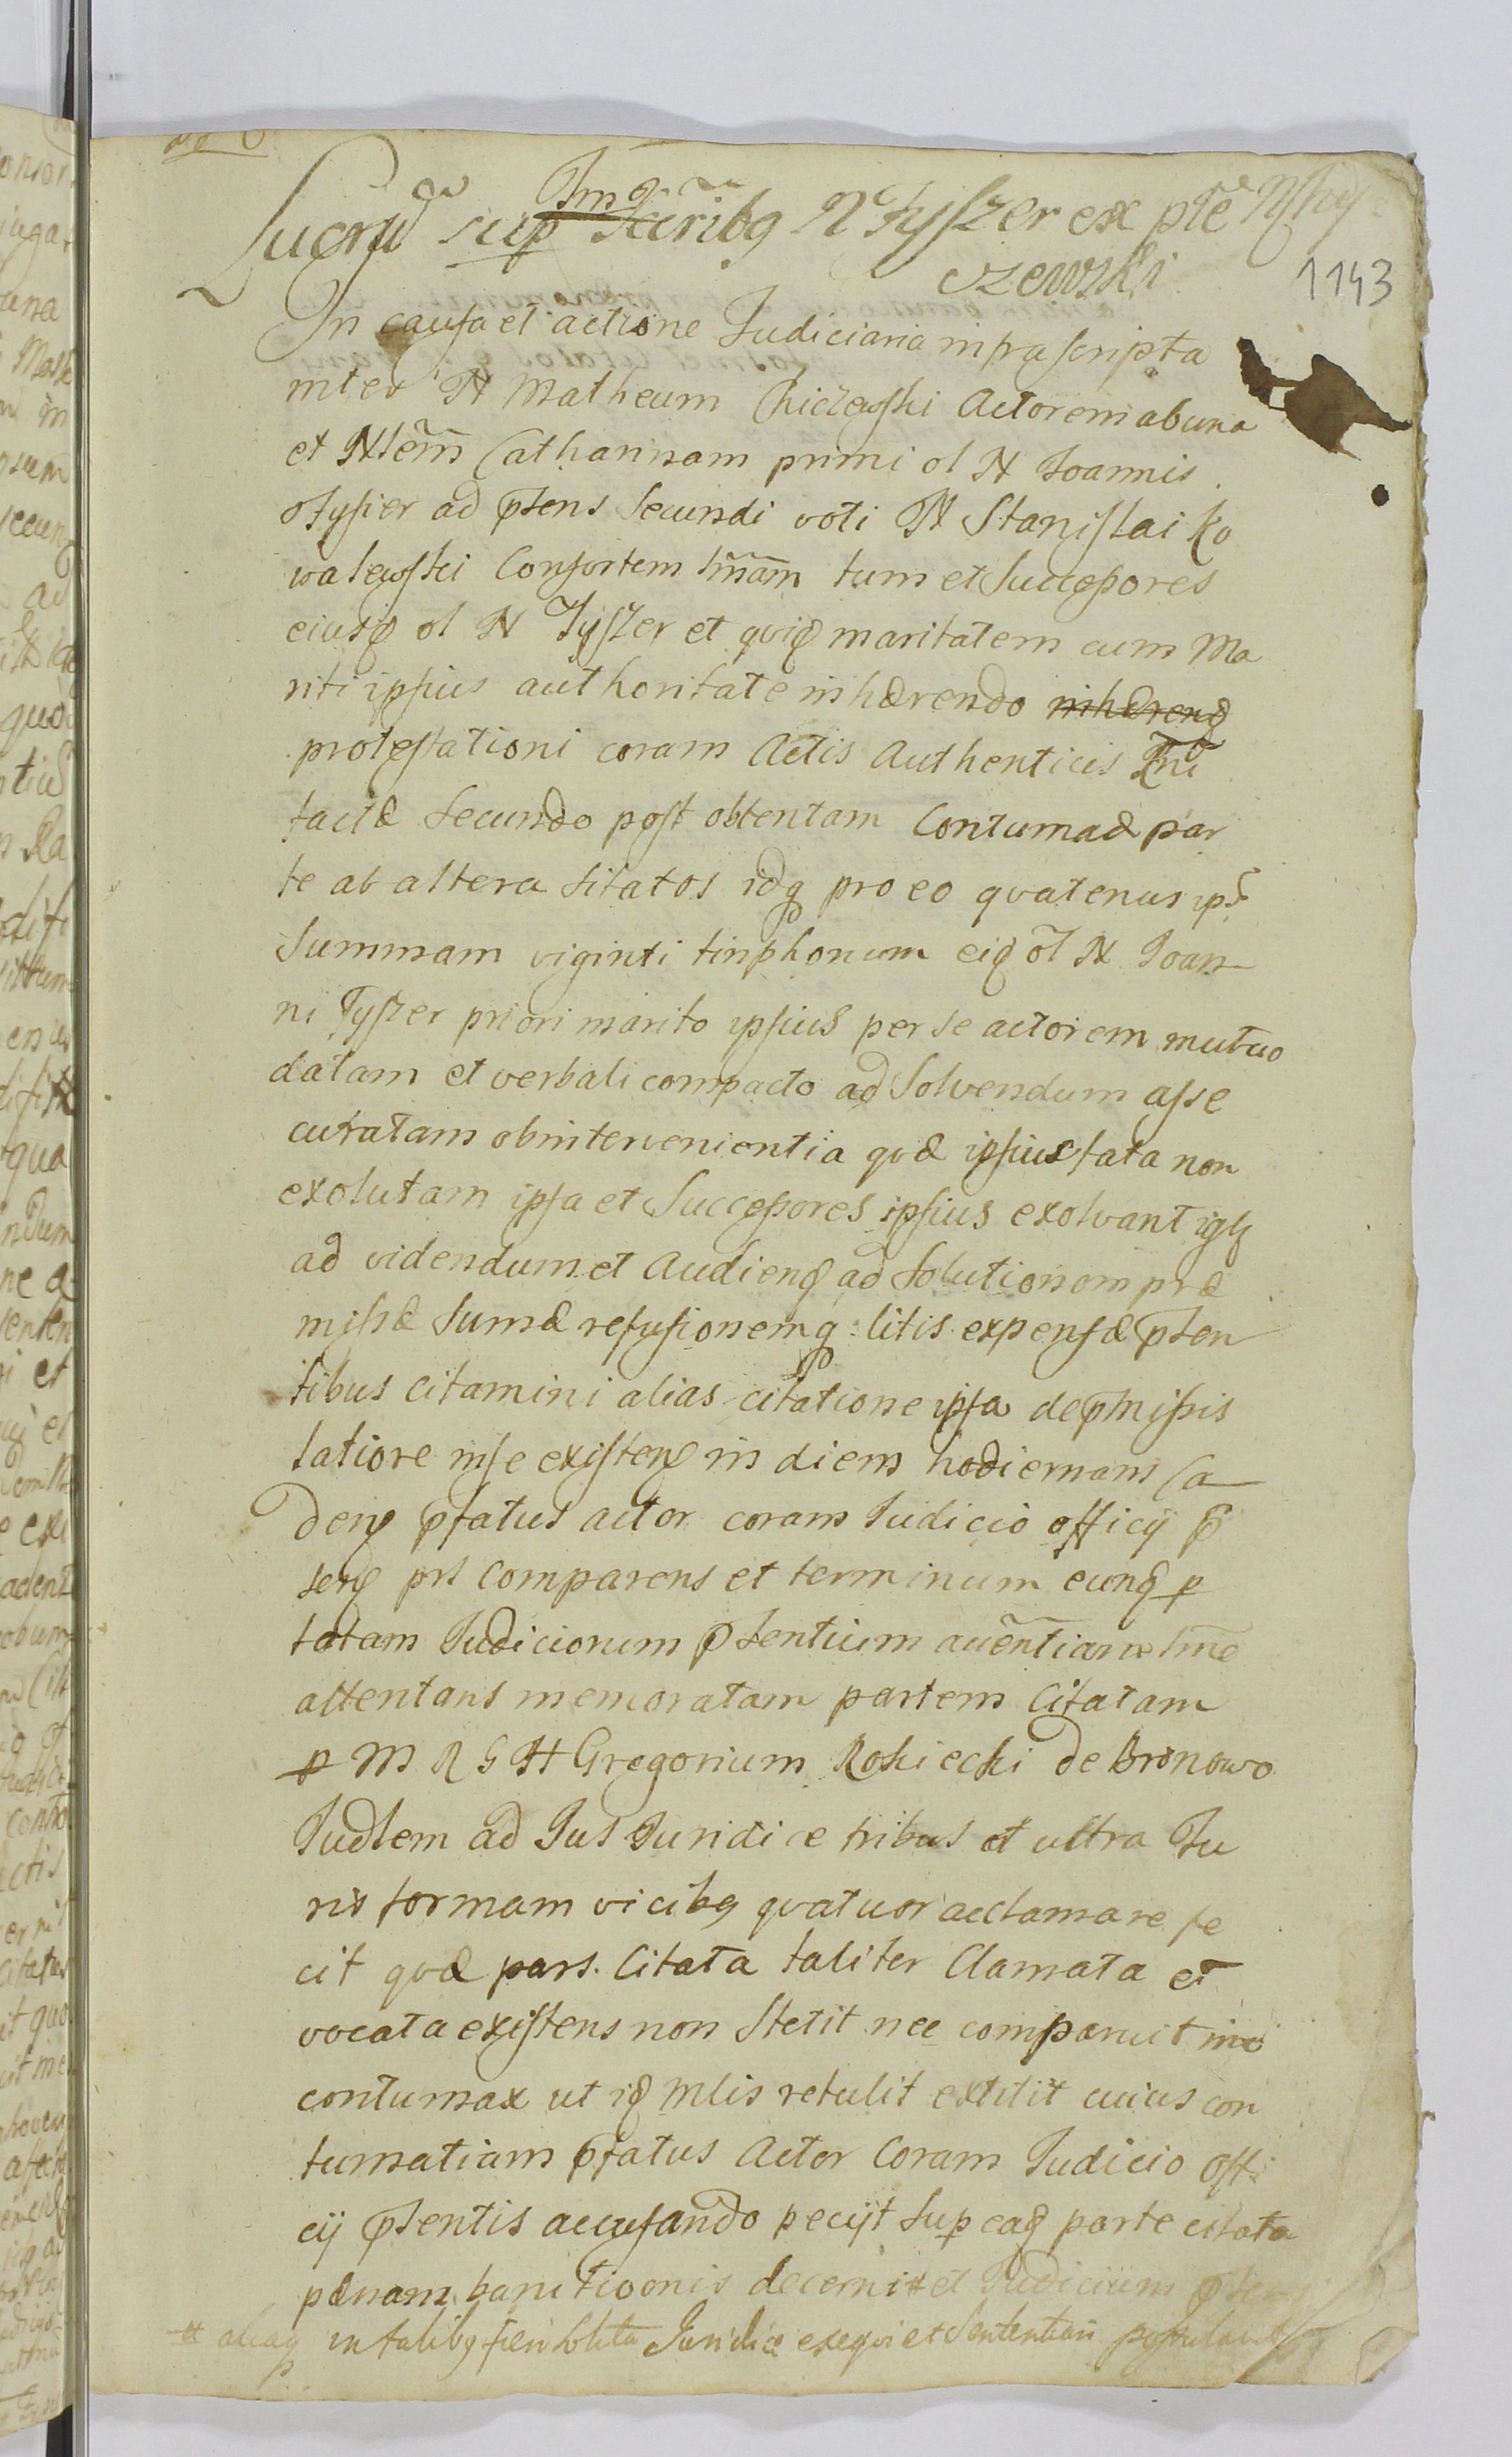 Lucrũ sup Tm̃o
N Tyszer ex pte N
czewski
1143
In causa et actione Judiciaria infrascripta
inter N Matheum Chiczewski Actorem ab una
et Nlem Catharinam primi ol N Joannis
Tyszer ad pnsens Secundi voti N Stanislai Ko
walewski Consortem tum et Successores
eiusd ol N Tyszer et quid maritatem cum Ma
riti ipsius authoritate inhærendo inhæreng
protestationi coram Actis Authenticis
factæ Secundo post obtentam Contumaciæ par
te ab altera Citatos idq pro eo qvatenus ips
Summam viginti tinphonum eid ol N Joan
ni Tyszer priori marito ipsius per se actorem mutuo
datam et verbali compacto ad Solvendum asse
curatam ob intervenientia qvæ ipsius fata non
exolutam ipsa et Successores ipsius exolvant
ad videndum et Audiend ad Solutionem præ
missæ Sumæ refusionemq litis expensæ psen
tibus Citamini alias citatione ipsa de pmissis
latiore in se existen in diem hodiernam Ca
den pfatus actor coram Judicio officij p
sen prt Comparens et terminum eund p
totam Judiciorum psentium
attentans memoratam partem Citatam
p M R G H Gregorium Rokiecki de Bronowo
Judlem ad Jus Juridice tribus et ultra Ju
ris formam vicibq qvatuor acclamare fe
cit qvæ pars Citata taliter Clamata et
vocata existens non Stetit nec comparuit imo
contumax ut id Mlis retulit extitit cuius con
tumatiam pfatus Actor Coram Judicio offi
cij psentis accusando pecijt Sup ead parte citata
pænam banitionis decerni et Judicium psen
aliaq in talibq fieri Solita Juridice exeqvi et Sententiari postulavit